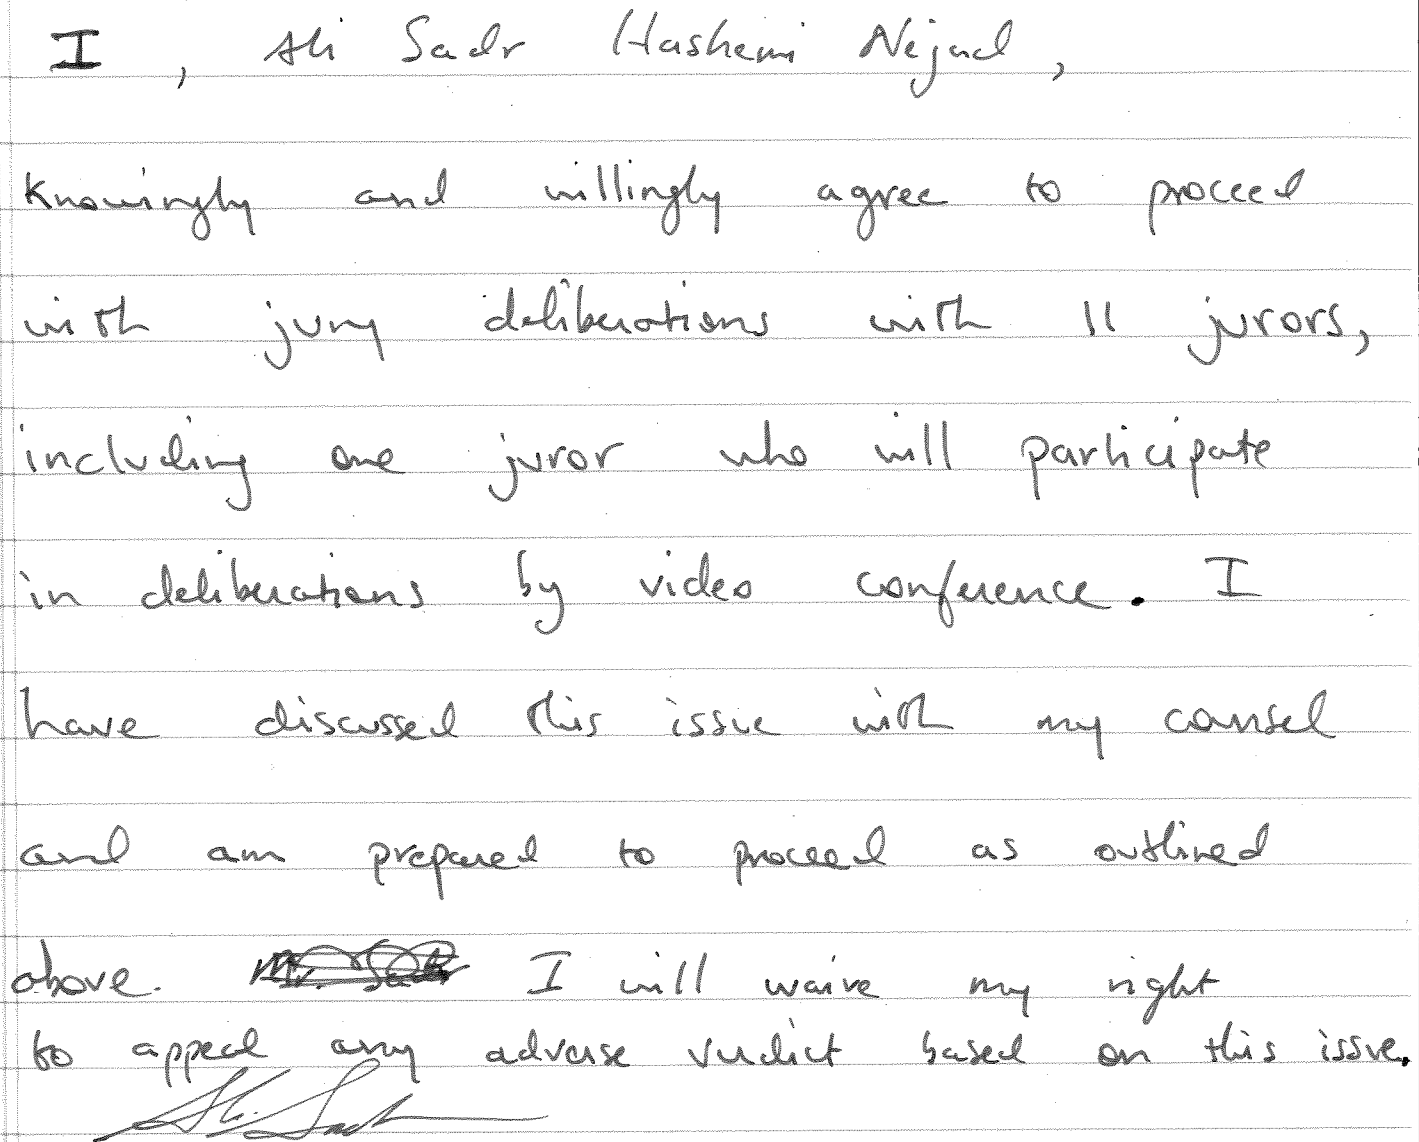 I, Ali Sadr Hashemi Nejad,
knowingly and willingly agree to proceed
with jury deliberations with 11 jurors,
including one juror who will participate
in deliberations by video conference. I
have discussed this issue with my counsel
and am prepared to proceed as outlined
above. Mr. Sadr I will waive my right
to appeal any adverse verdict based on this issue.
Ali Sadr